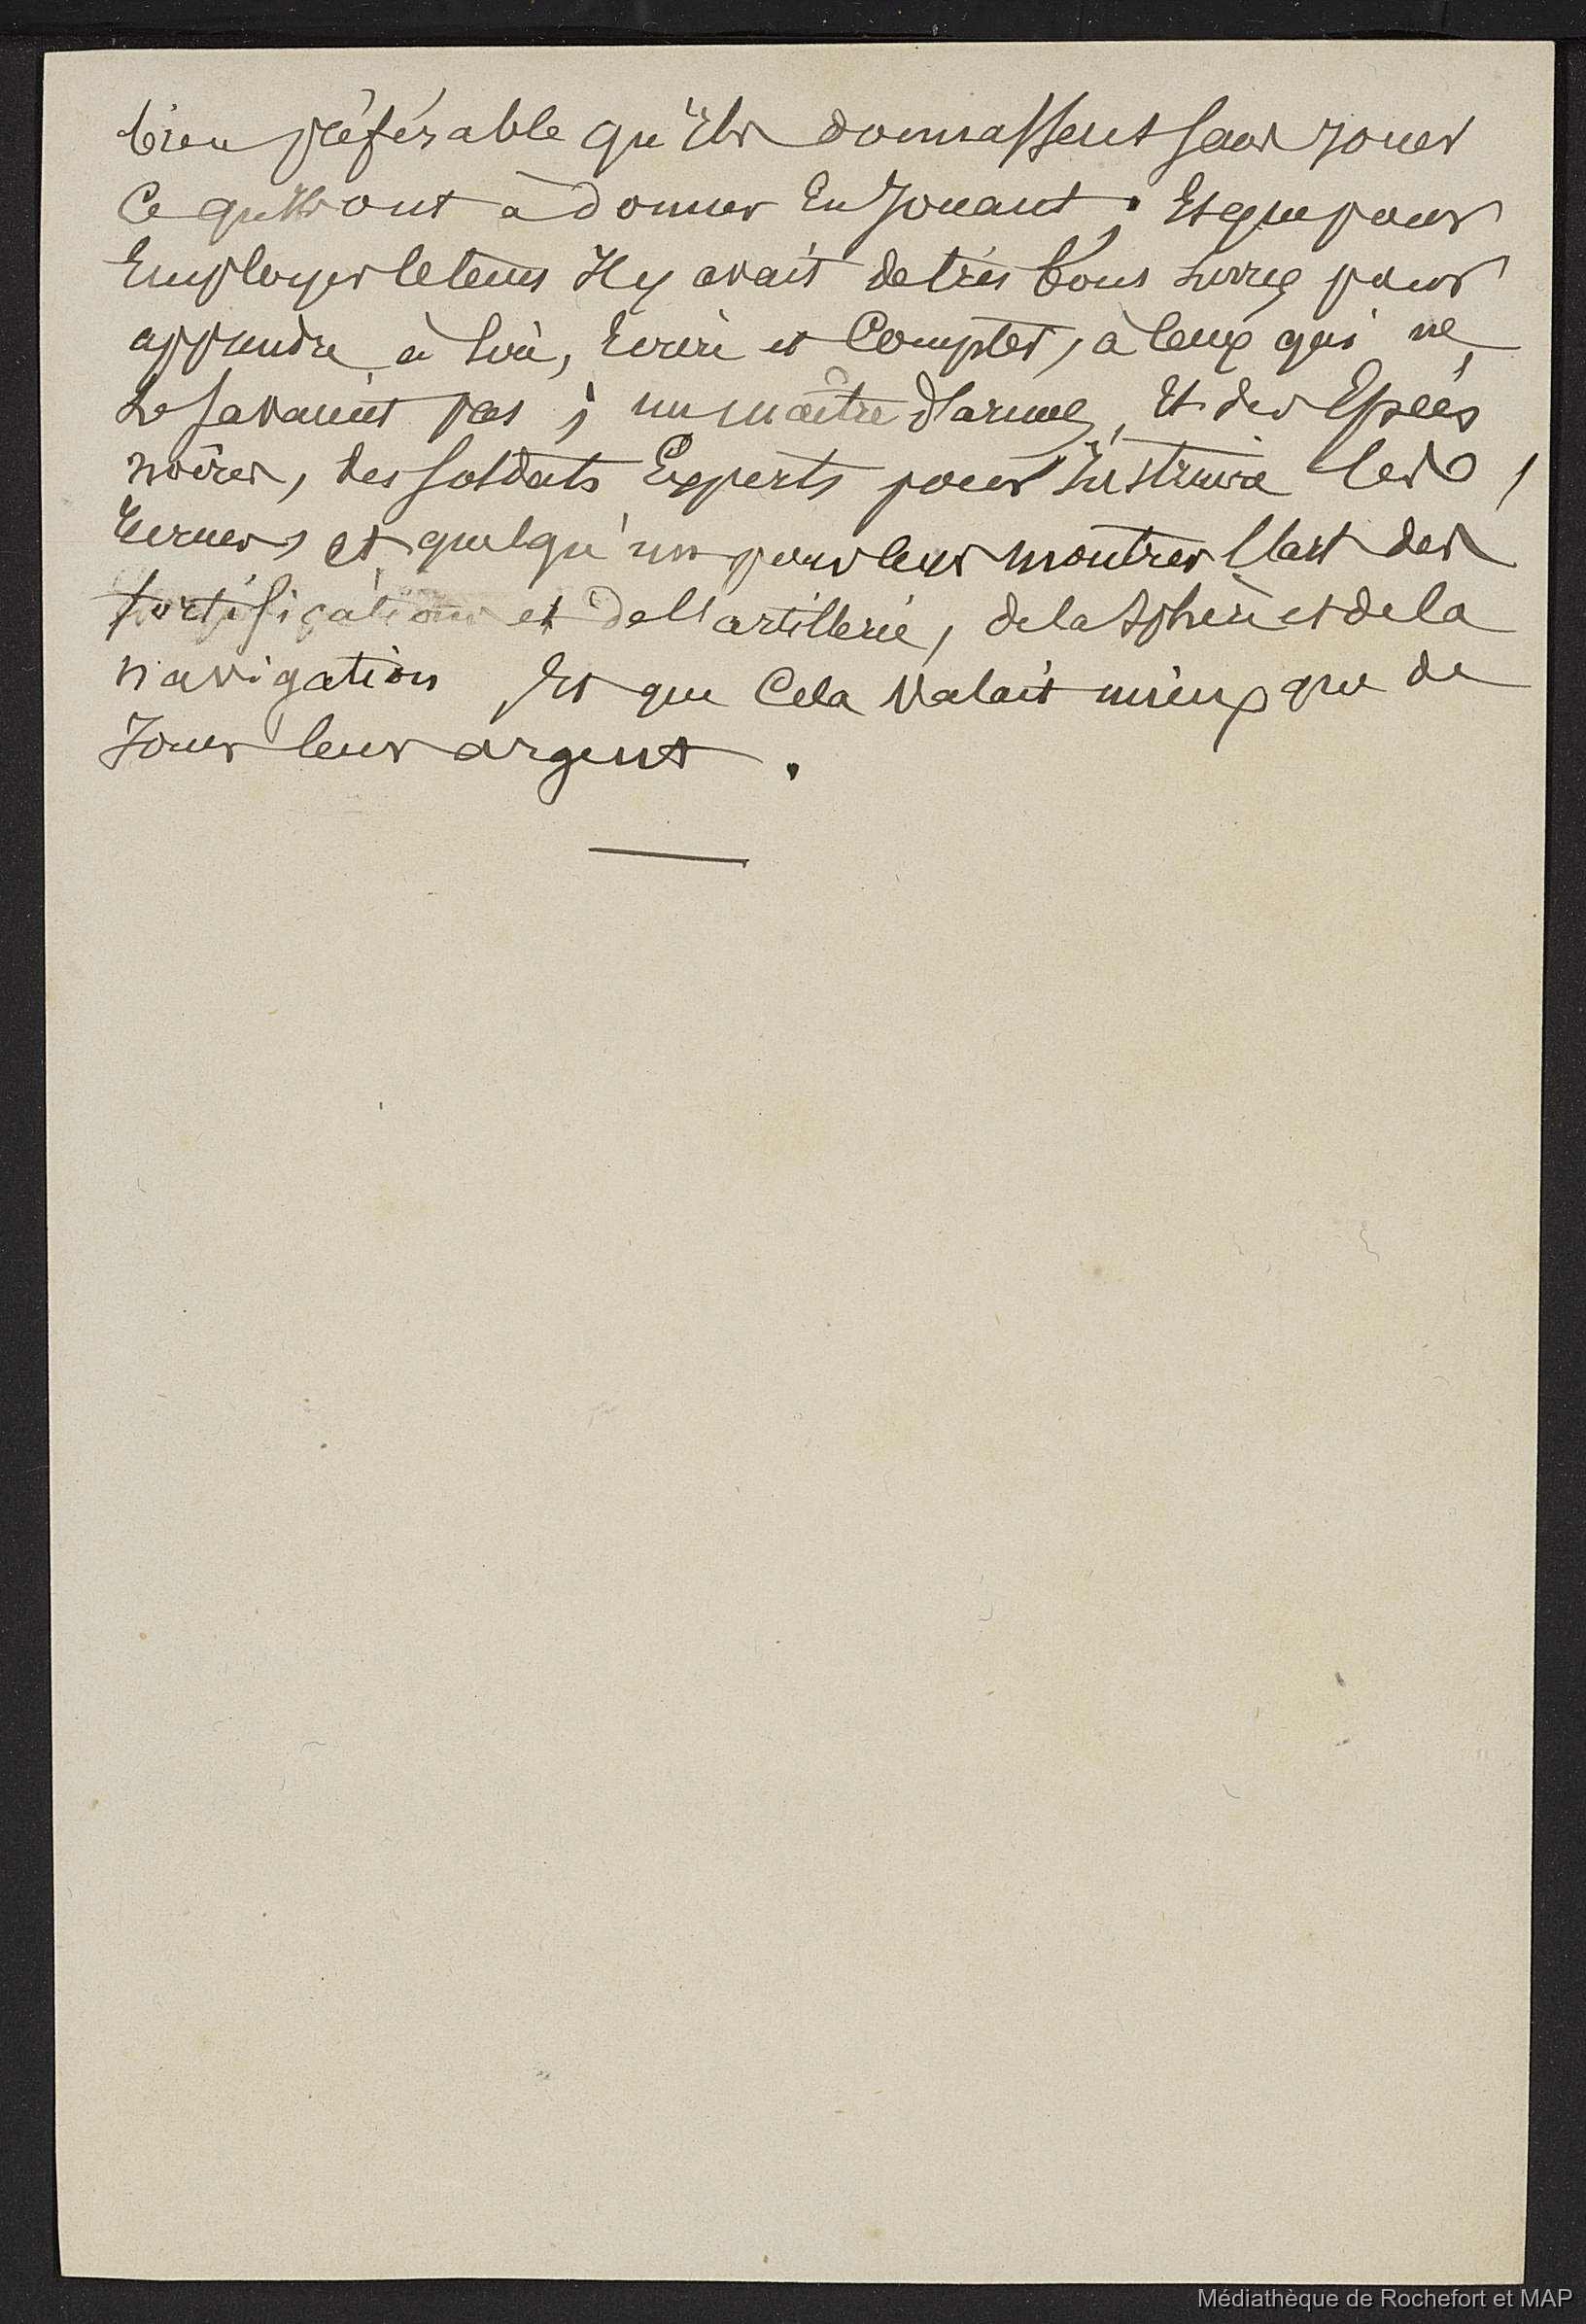 bien préférable qu'Ils donnassent sans Jouer
Ce qu'Ils ont à donner En Jouant ; Et que pour
Employer le tems Il y avait de très bons Livres pour
apprendre à Lire, Ecrire et Compter, à Ceux qui ne
Le Savaient pas ; un maître d'armes, Et des Epées
noires, des Soldats Experts pour Instruire les
et quelqu'un pour leur montrer l'art des
fortifications et de l'artillerie, de la Sphère et de la
navigation Et que Cela Valait mieux que de
Jouer leur argent.
Médiathèque de Rochefort et MAP